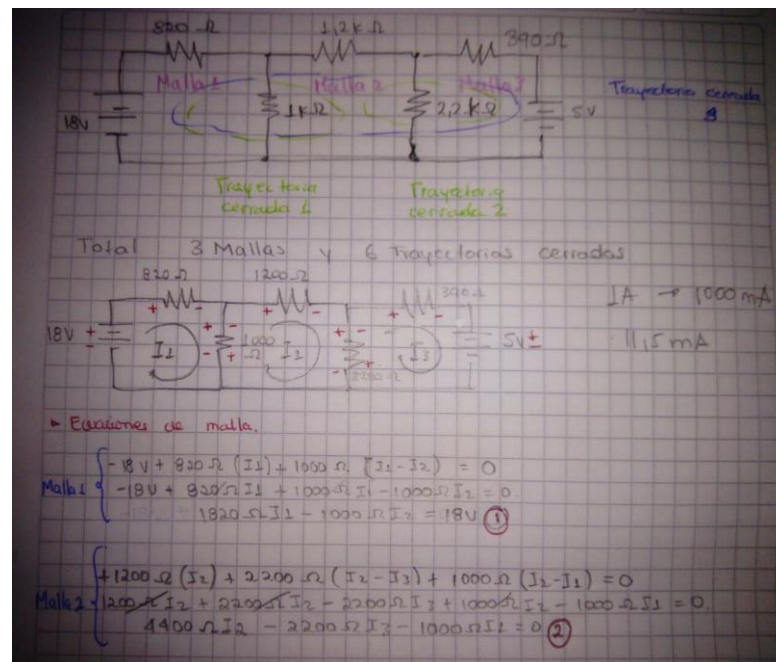 820 Ω 1,2k Ω 390 Ω
Malla 1 Malla 2 Malla 3
18V 1kΩ 2,2kΩ 5V
Trayectoria cerrada
Trayectoria cerrada 1
Trayectoria cerrada 2
Total 3 Mallas y 6 Trayectorias cerradas
820Ω 1200Ω 390Ω
1A → 1000 mA
18V I1 1000 Ω I2 2200Ω I3 5V
11,5 mA
Ecuaciones de malla.
-18V + 820Ω (I1) + 1000Ω (I1-I2) = 0
Malla 1 -18V + 820ΩI1 + 1000ΩI1 - 1000ΩI2 = 0
1820ΩI1 - 1000ΩI2 = 18V ①
+1200Ω (I2) + 2200Ω (I2-I3) + 1000Ω (I2-I1) = 0
Malla 2 1200ΩI2 + 2200ΩI2 - 2200ΩI3 + 1000ΩI2 - 1000ΩI1 = 0
4400ΩI2 - 2200ΩI3 - 1000ΩI1 = 0 ②